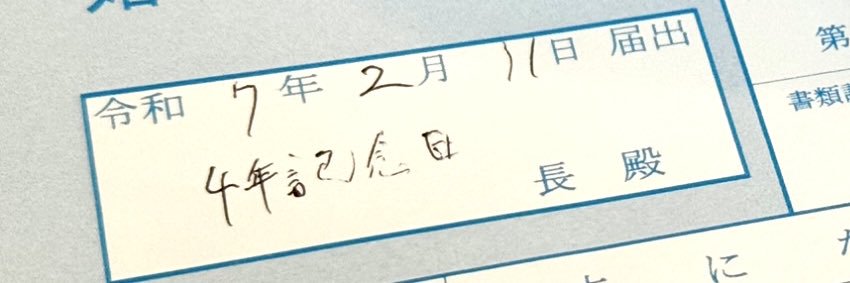 令和 7 年 2 月 11 日 届出
4年記念日
長 殿
第
書類
に